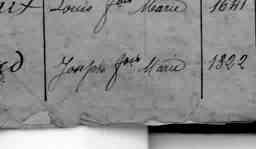 Louis fois Marie 1841
Joseph fois Marie 1822